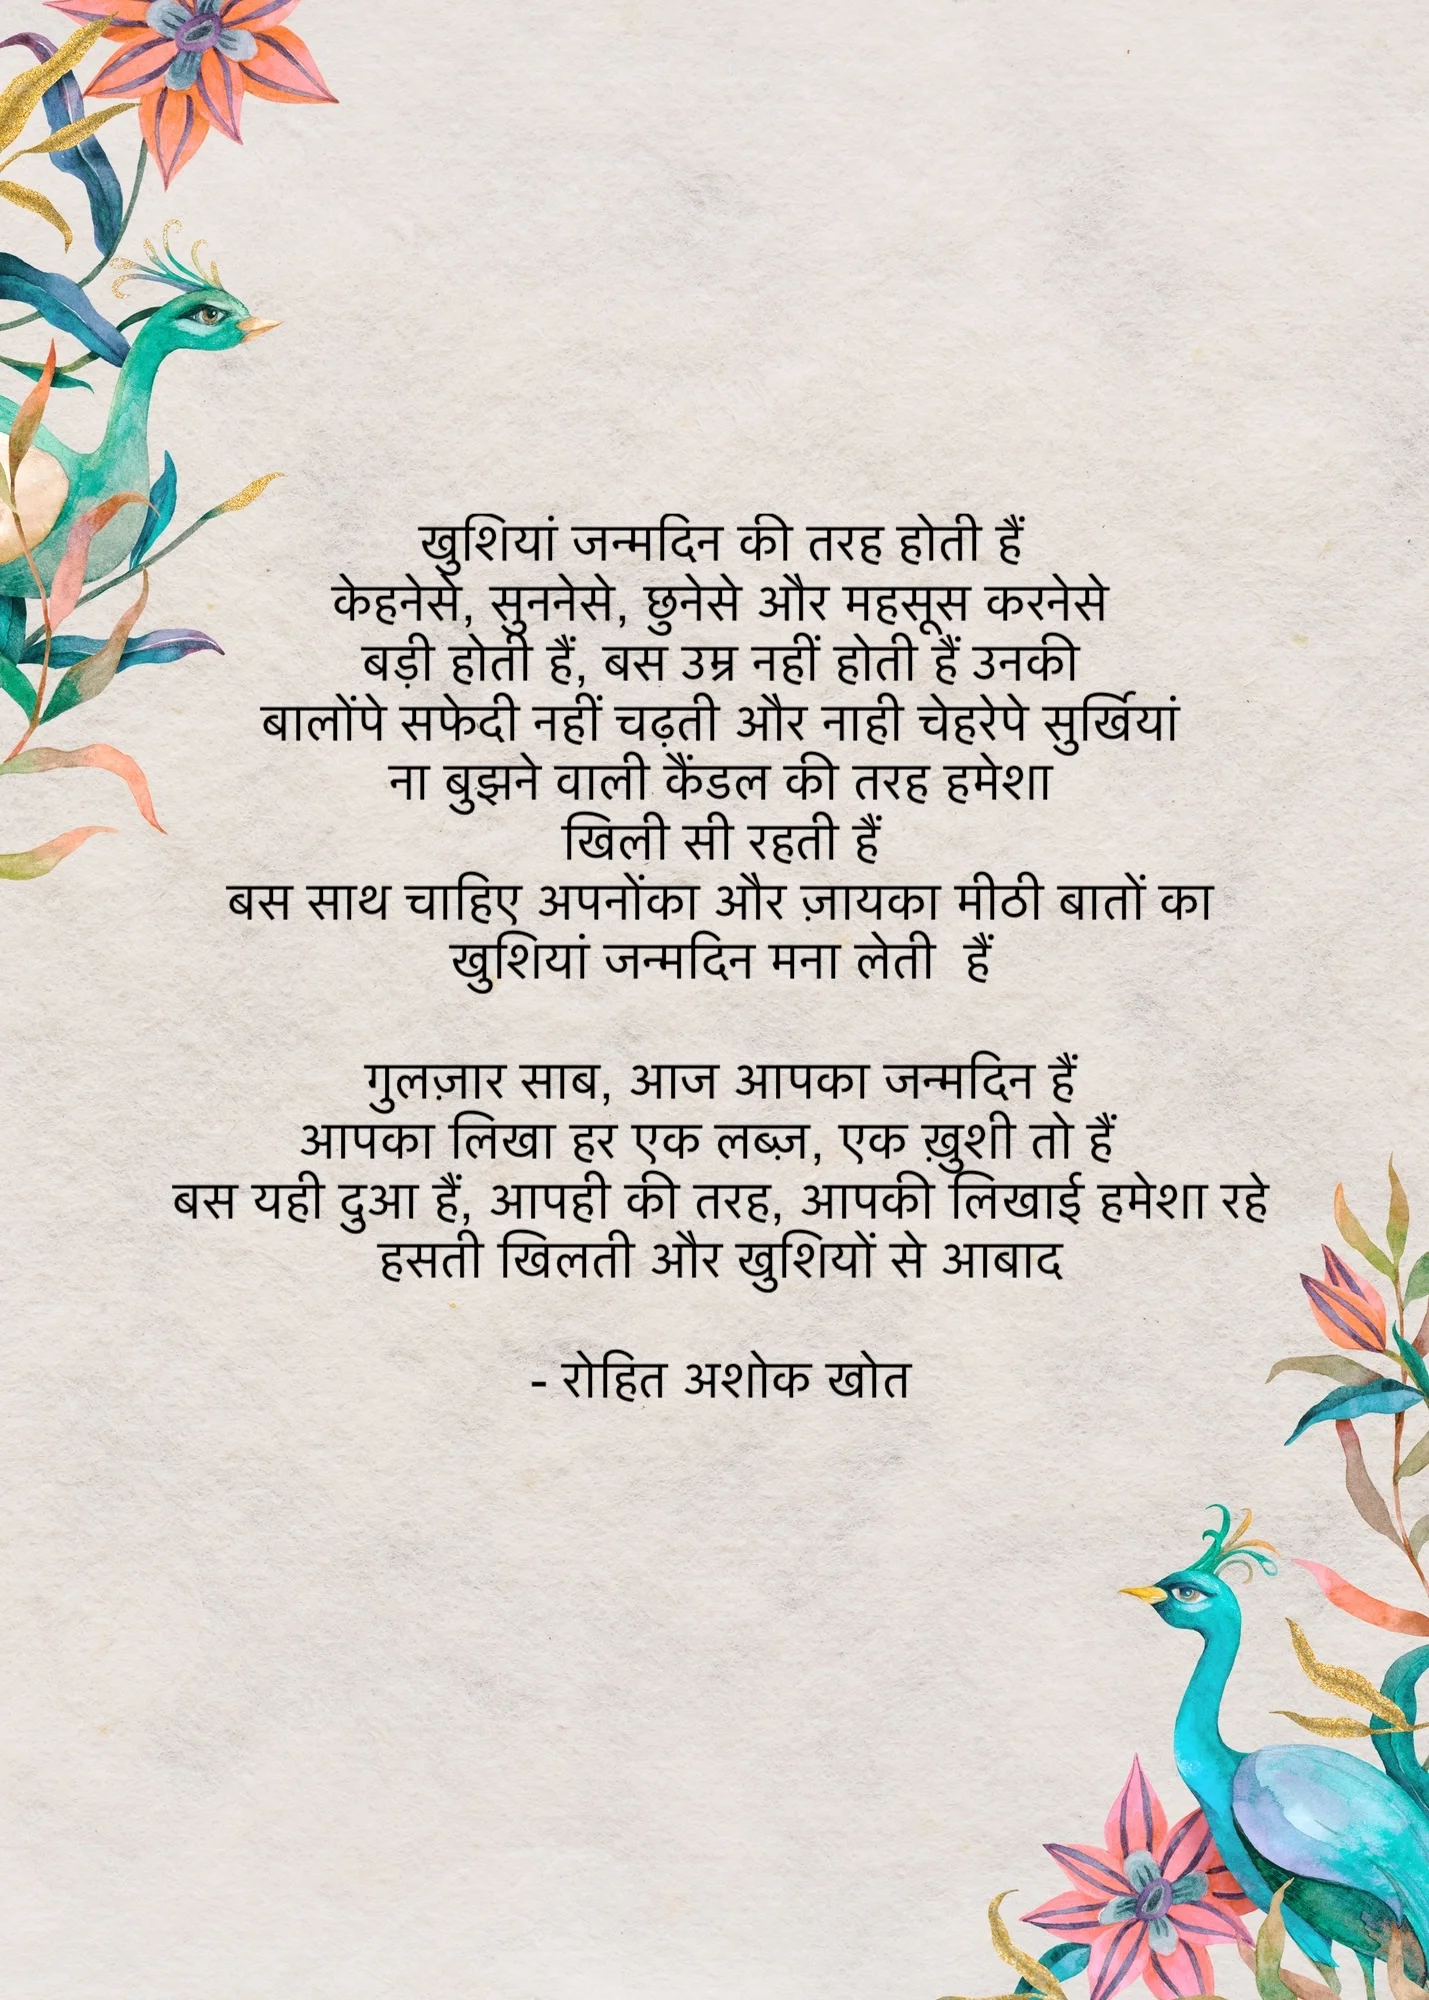 खुशियां जन्मदिन की तरह होती हैं
केहनेसे, सुननेसे, छुनेसे और महसूस करनेसे
बड़ी होती हैं, बस उम्र नहीं होती हैं उनकी
बालोंपे सफेदी नहीं चढ़ती और नाही चेहरेपे सुर्खियां
ना बुझने वाली कैंडल की तरह हमेशा
खिली सी रहती हैं
बस साथ चाहिए अपनोंका और ज़ायका मीठी बातों का
खुशियां जन्मदिन मना लेती हैं
गुलज़ार साब, आज आपका जन्मदिन हैं
आपका लिखा हर एक लब्ज़, एक ख़ुशी तो हैं
बस यही दुआ हैं, आपही की तरह, आपकी लिखाई हमेशा रहे
हसती खिलती और खुशियों से आबाद
- रोहित अशोक खोत